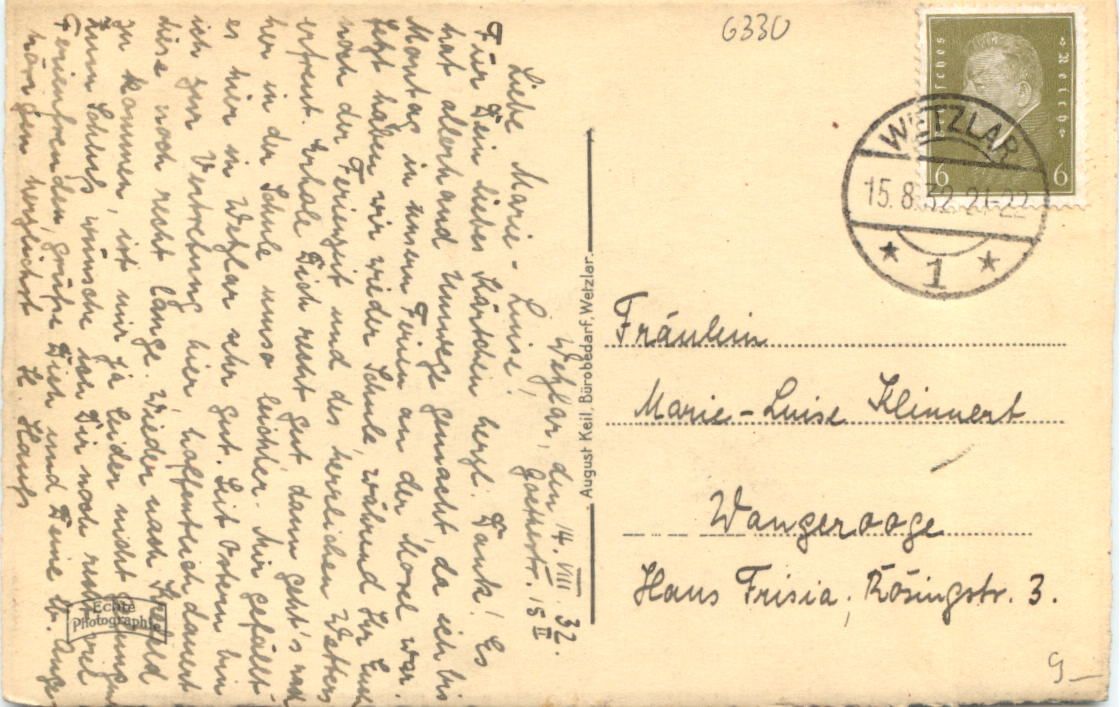 Wetzlar, den 14. VIII. 32.
Goethestr. 15 II
Liebe Marie-Luise!
Für Dein liebes Kärtchen herzl. Dank! Es
hat allerhand Umwege gemacht, da ich bis
Montag in unsern Ferien an der Mosel war.
Jetzt haben wir wieder Schule, während Ihr Euch
noch der Ferienzeit und des herrlichen Wetters
erfreut. Erhole Dich recht gut, dann geht's nach
her in der Schule umso leichter. Mir gefällt
es hier in Wetzlar sehr gut. Seit Ostern bin
ich zur Vertretung hier, hoffentlich dauert
diese noch recht lange. Wieder nach
zu kommen, ist mir ja leider nicht
Zum Schluß wünsche ich Dir noch recht viel
Ferienfreuden, grüße Dich und Deine lb. Ange-
hörigen herzlichst H. Hanß
Echte
Photographie
August Keil, Bürobedarf, Wetzlar.
6330
Deutsches Reich
6 6
WETZLAR
15.8.32.21-22
1
Fräulein
Marie-Luise Klinnert
Wangerooge
Haus Frisia, Rösingstr. 3.